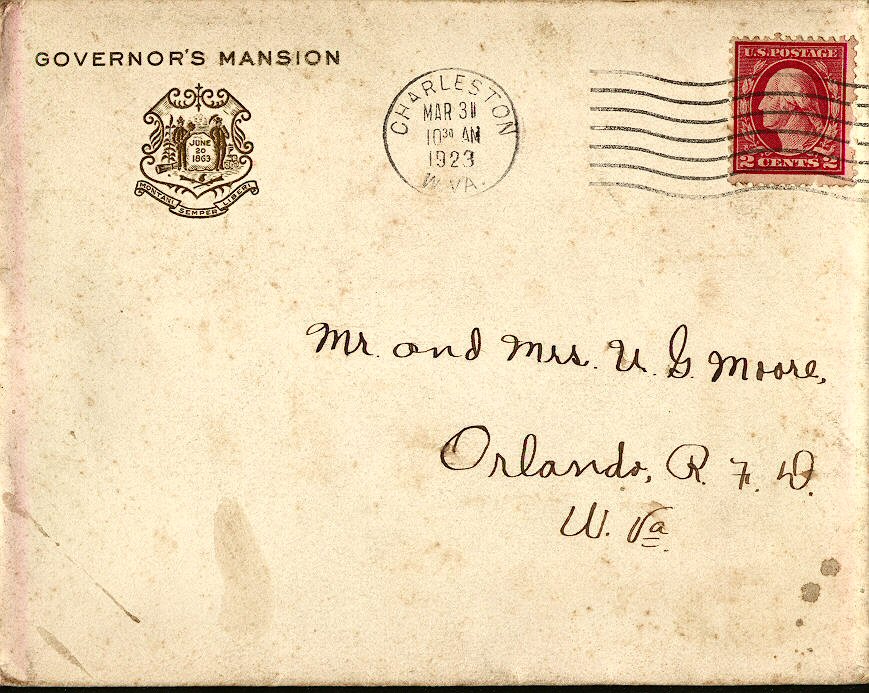 GOVERNOR'S MANSION
JUNE
20
1863
MONTANI SEMPER LIBERI
CHARLESTON
MAR 31
10³⁰ AM
1923
W. VA.
U.S. POSTAGE
2 CENTS 2
Mr. and Mrs. U. G. Moore,
Orlando, R. F. D.
W. Va.